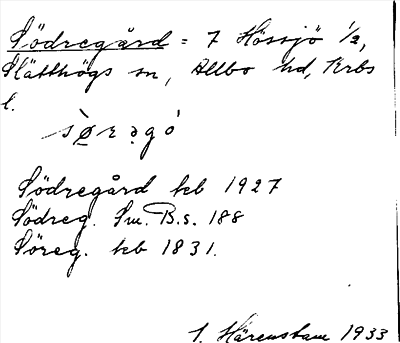 Södregård = 7 Hössjö 1/2,
Slätthögs sn, Allbo hd, Krbs
l.
sø̀rəgó
Södregård kb 1927
Södreg. Sm. B.s. 188
Söreg. kb 1831.
1. Härenstam 1933